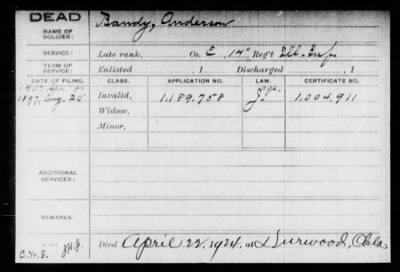 DEAD
NAME OF SOLDIER: Bandy, Anderson
SERVICE: Late rank, Co. E, 14" Reg't Ill. Inf.
TERM OF SERVICE: Enlisted , 1 Discharged , 1
DATE OF FILING. CLASS. APPLICATION NO. LAW. CERTIFICATE NO.
1907
1897, Aug. 25 Invalid, 1,189,758 1,004,911
Widow,
Minor,
ADDITIONAL SERVICES:
REMARKS:
Died April 22, 1924, at Durwood, Okla
C.W.S.